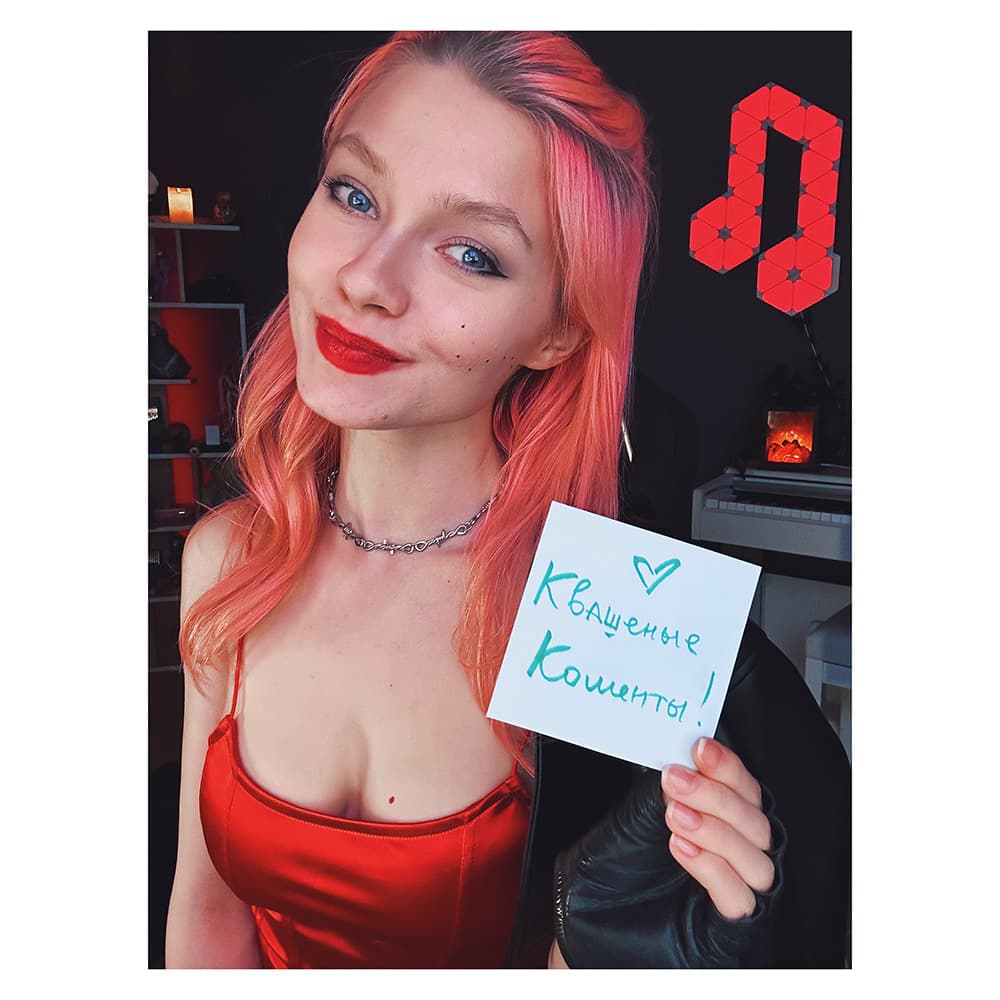 Квашеные
Коменты!